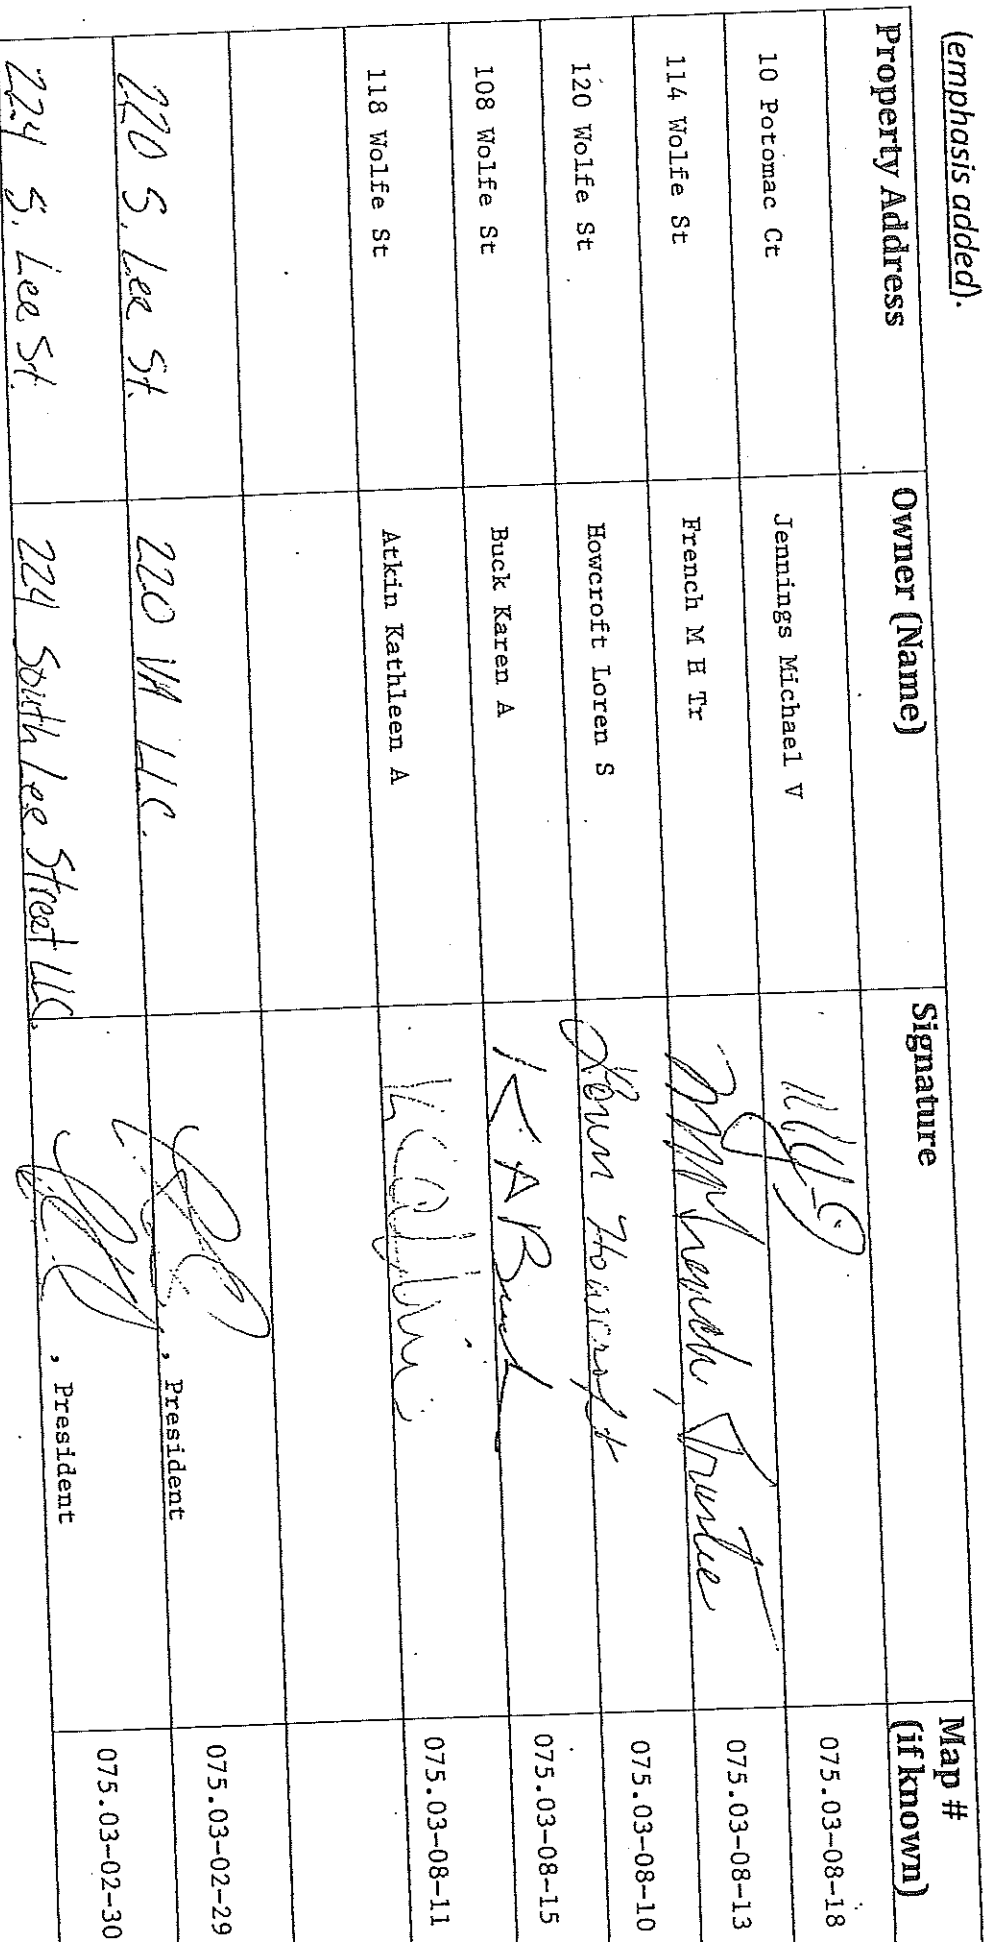 (emphasis added).
Property Address Owner (Name) Signature Map # (if known)
10 Potomac Ct Jennings Michael V 075.03-08-18
114 Wolfe St French M H Tr French, Trustee 075.03-08-13
120 Wolfe St Howcroft Loren S Loren Howcroft 075.03-08-10
108 Wolfe St Buck Karen A K A Buck 075.03-08-15
118 Wolfe St Atkin Kathleen A 075.03-08-11
220 S. Lee St. 220 VA LLC. , President 075.03-02-29
224 S. Lee St. 224 South Lee Street LLC. , President 075.03-02-30